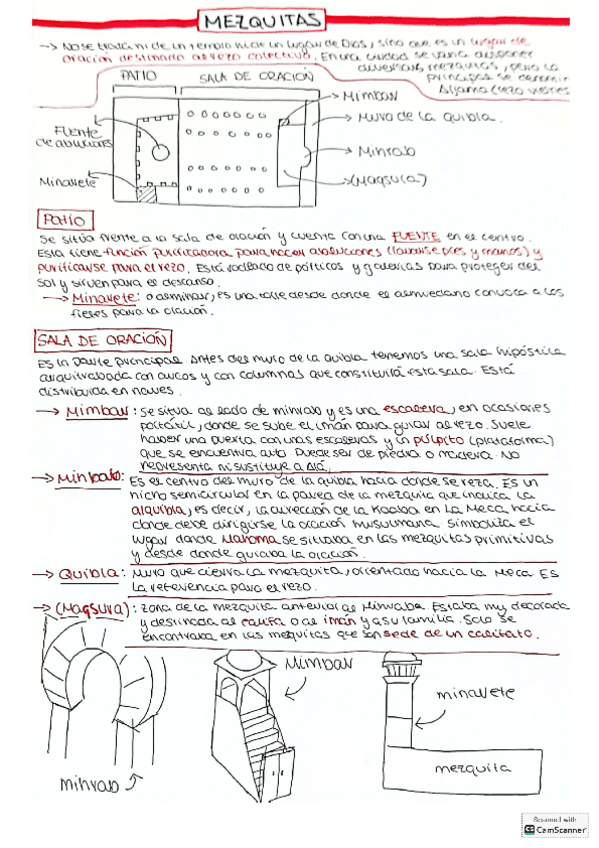 MEZQUITAS
→ No se trata ni de un templo ni de un lugar de Dios, sino que es un lugar de
oración destinado al rezo colectivo. En una ciudad se varía disponer
diversas mezquitas, pero la
principal se denomina
Aljama (rezo viernes
PATIO
SALA DE ORACIÓN
Mimbar
Muro de la quibla.
Fuente
de abluciones
Mihrab
Minarete
(Maqsura)
PATIO
Se sitúa frente a la sala de oración y cuenta con una FUENTE en el centro.
Esta tiene función purificadora para hacer abluciones (lavarse pies y manos) y
purificarse para el rezo. Está rodeado de pórticos y galerías para proteger del
sol y sirven para el descanso.
→ Minarete: o alminar, es una torre desde donde el almuédano convoca a los
fieles para la oración.
SALA DE ORACIÓN
Es la parte principal. Antes del muro de la quibla tenemos una sala hipóstila
arquitrabada con arcos y con columnas que constituirá esta sala. Está
distribuida en naves.
→ Mimbar: se situa al lado de mihrab y es una escalera, en ocasiones
portátil, donde se sube el imán para guiar al rezo. Suele
haber una puerta con unas escaleras y un púlpito (plataforma)
que se encuentra alto. Puede ser de piedra o madera. No
representa ni sustituye a Alá.
→ Mihrab: Es el centro del muro de la quibla hacia donde se reza. Es un
nicho semicircular en la pared de la mezquita que indica la
alquibla, es decir, la dirección de la Kaaba en La Meca hacia
donde debe dirigirse la oración musulmana. Simboliza el
lugar donde Mahoma se situaba en las mezquitas primitivas
y desde donde guiaba la oración.
→ Quibla: Muro que cierra la mezquita, orientado hacia la Meca. Es
la referencia para el rezo.
→ (Maqsura): zona de la mezquita anterior al Mihrab. Estaba muy decorada
y destinada al califa o al imán y a su familia. Solo se
encontraba en las mezquitas que son sede de un califato.
Mimbar
minarete
mezquita
mihrab
Scanned with
CS CamScanner